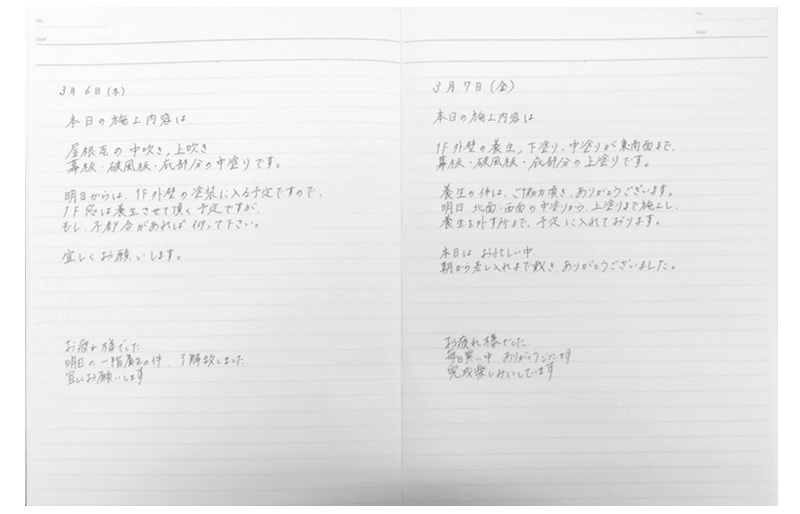 No.
Date
3月6日(木)
本日の施工内容は
屋根瓦の中吹き,上吹き
幕板・破風板・庇部分の中塗りです。
明日からは、1F外壁の塗装に入る予定ですので、
1F窓は養生させて頂く予定ですが
もし、不都合があれば 仰って下さい。
宜しくお願いします。
お疲れ様でした
明日の一階養生の件、了解致しました
宜しくお願いします
No.
Date
3月7日(金)
本日の施工内容は
1F外壁の養生,下塗り、中塗りが東南面まで、
幕板・破風板・庇部分の上塗りです。
養生の件は、ご協力頂き、ありがとうございます。
明日、北面・西面の中塗りから、上塗りまで施工し、
養生を外す所まで、予定に入れております。
本日は お忙しい中
朝から差し入れまで戴き、ありがとうございました。
お疲れ様でした
毎日寒い中 ありがとうございます
完成楽しみにしています